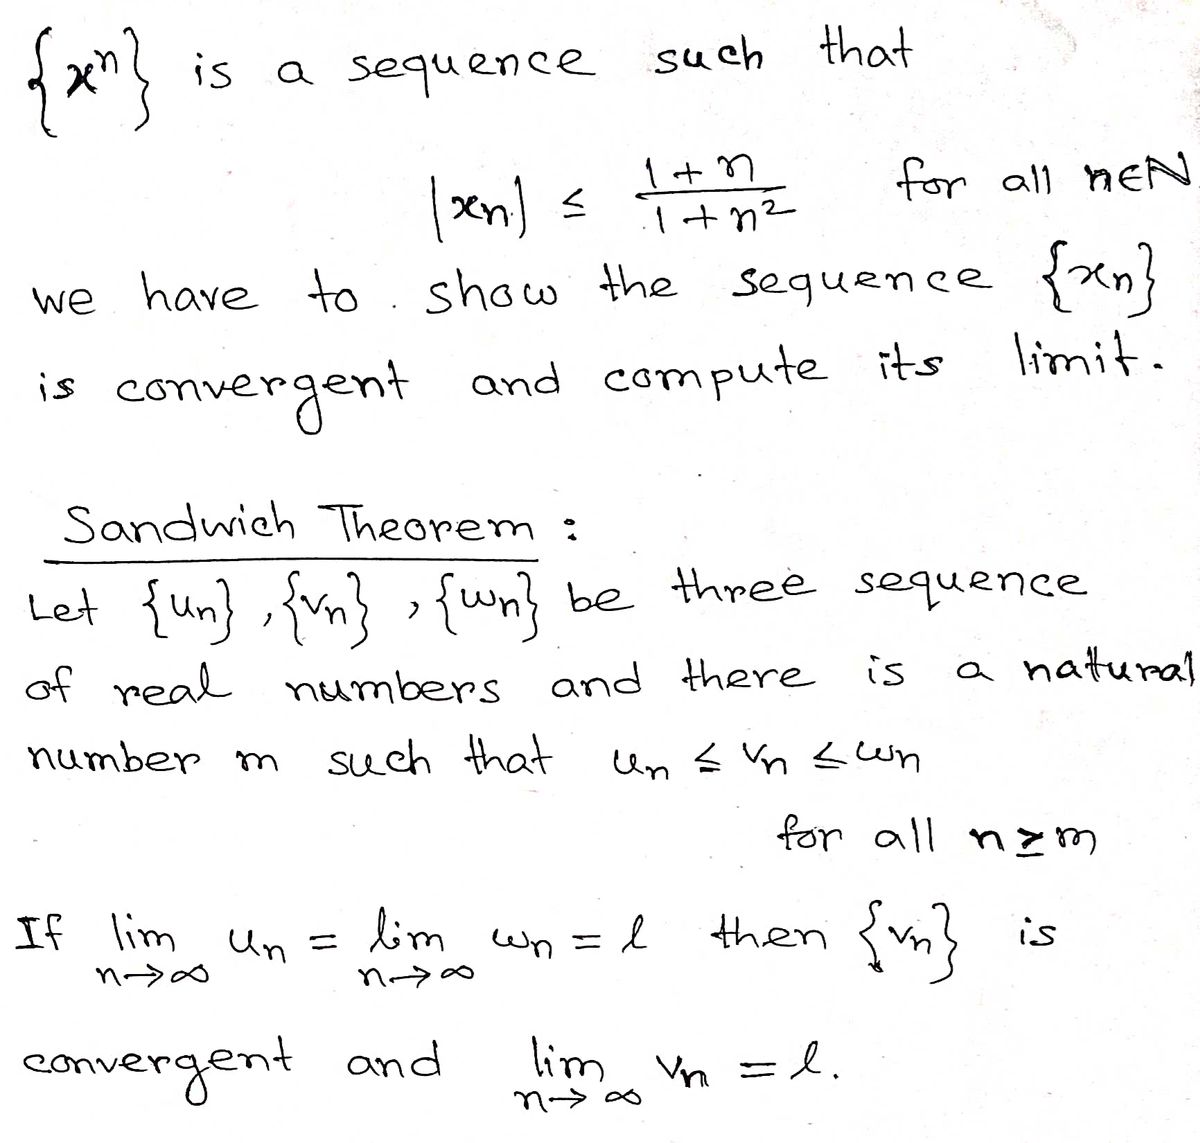 {xⁿ} is a sequence such that
|xₙ| ≤ (1+n)/(1+n²) for all n∈N
we have to show the sequence {xₙ}
is convergent and compute its limit.
Sandwich Theorem :
Let {uₙ}, {vₙ}, {wₙ} be three sequence
of real numbers and there is a natural
number m such that uₙ ≤ vₙ ≤ wₙ
for all n ≥ m
If lim uₙ = lim wₙ = l then {vₙ} is
n→∞ n→∞
convergent and lim vₙ = l.
n→∞